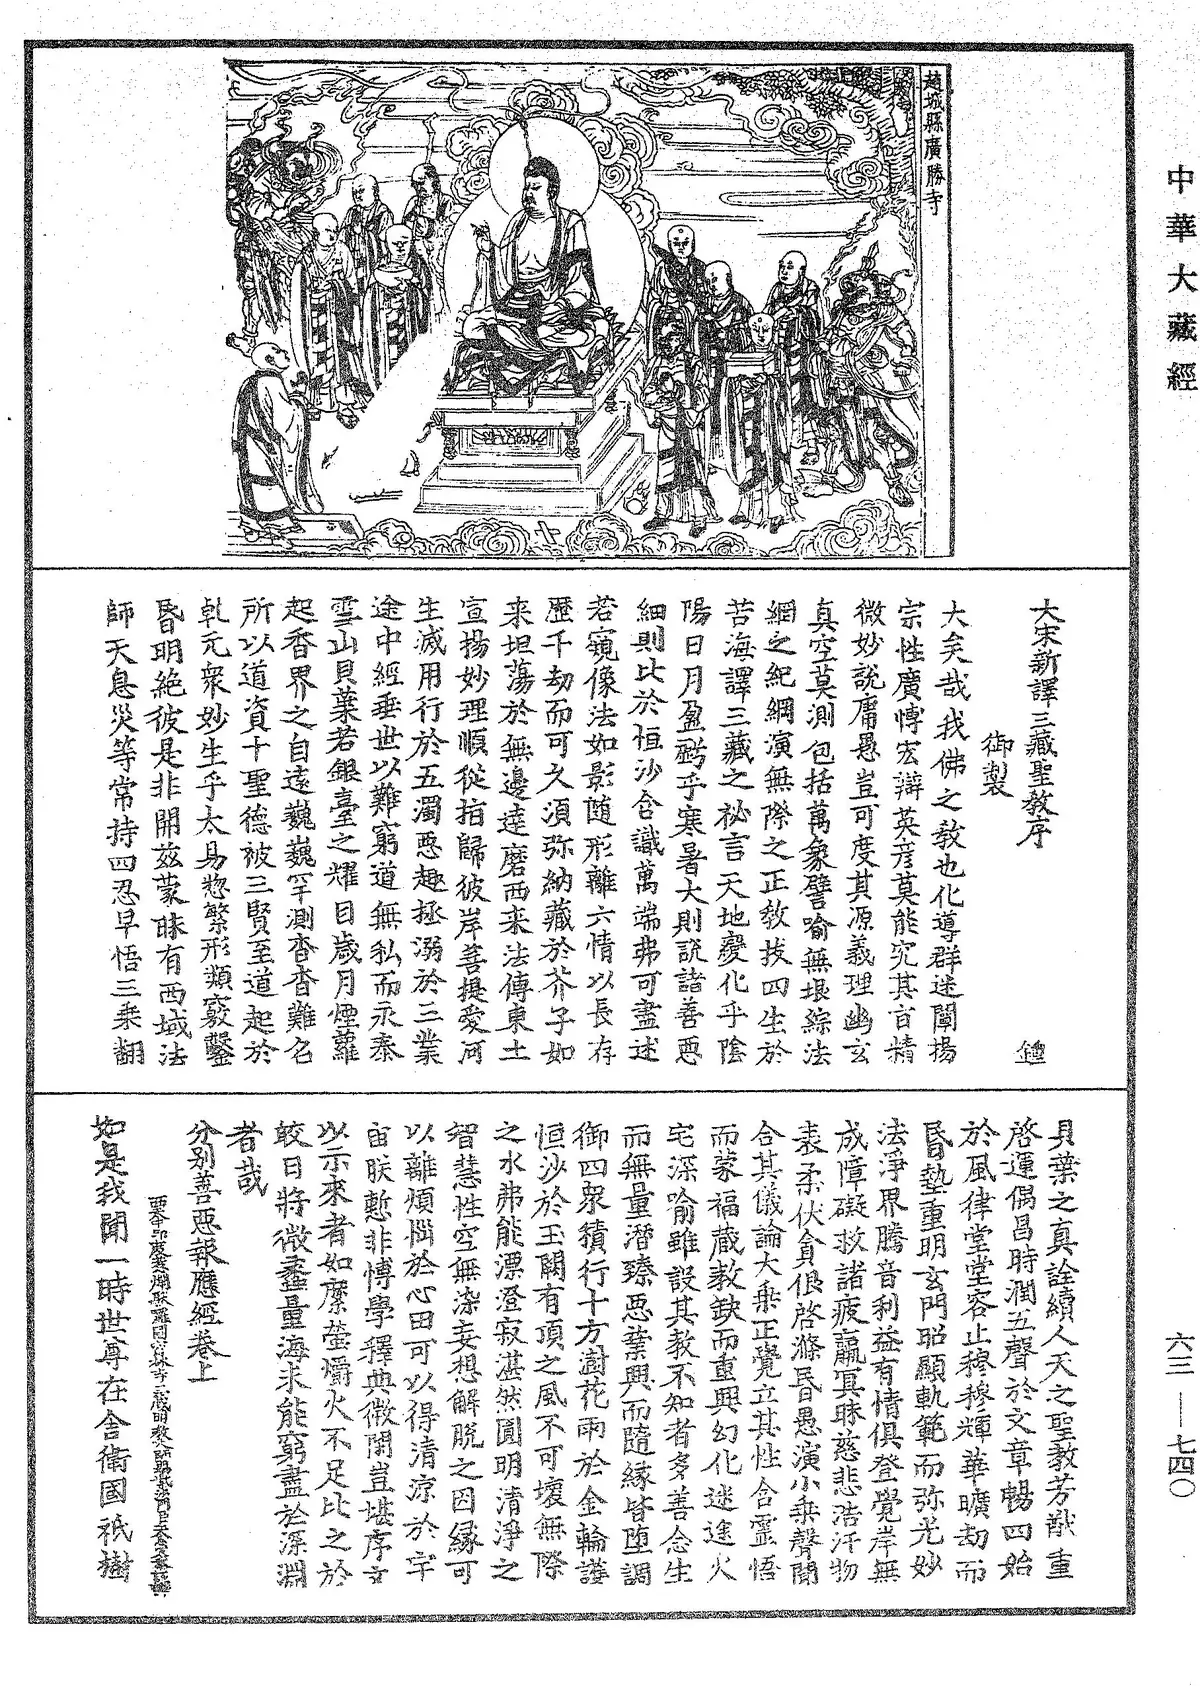 中華大藏經
趙城縣廣勝寺
大宋新譯三藏聖教序
鍾
御製
大矣哉我佛之教也化導群迷闡揚
宗性廣愽宏辯英彦莫能究其㫖精
微妙說庸愚豈可度其源義理幽玄
真空莫測包括萬象譬喻無垠綜法
網之紀綱演無際之正教拔四生於
苦海譯三藏之祕言天地變化乎陰
陽日月盈虧乎寒暑大則說諸善惡
細則比於恒沙含識萬端弗可盡述
若窺像法如影随形離六情以長存
歷千劫而可久須弥納藏於芥子如
来坦蕩於無邊達磨西来法傳東土
宣揚妙理順從指歸彼岸菩提愛河
生滅用行於五濁惡趣拯溺於三業
途中經垂世以難窮道無私而永泰
雪山貝葉若銀臺之耀目歲月煙蘿
起香界之自遠巍巍罕測杳杳難名
所以道資十聖德被三賢至道起於
乹元衆妙生乎太易惣繁形類竅鑿
昏明絶彼是非開兹蒙昧有西域法
師天息災等常持四忍早悟三乗翻
貝葉之真詮續人天之聖教芳猷重
啓運偶昌時潤五聲於文章暢四始
於風律堂堂容止穆穆輝華曠劫而
昏墊重明玄門昭顯軌範而弥光妙
法淨界騰音利益有情俱登覺岸無
成障礙救諸疲羸冥昧慈悲浩汗物
表柔伏貪佷啓滌昏愚演小乗聲聞
合其儀論大乗正覺立其性含靈悟
而蒙福藏教缺而重興幻化迷途火
宅深喻雖設其教不知者多善念生
而無量潛臻惡業興而隨緣皆堕調
御四衆積行十方澍花雨於金輪護
恒沙於玉闕有頂之風不可壞無際
之水弗能漂澄寂湛然圓明清淨之
智慧性空無染妄想解脱之因緣可
以離煩惱於心田可以得清凉於宇
宙朕慙非博學釋典微閑豈堪序文
以示来者如縻螢爝火不足比之於
皎日將微蠡量海未能窮盡於深淵
者哉
分别善惡報應經卷上
如是我聞一時世尊在舍衛國祇樹
六三—七四〇